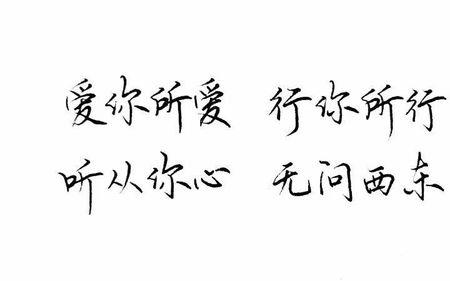 爱你所爱 行你所行
听从你心 无问西东